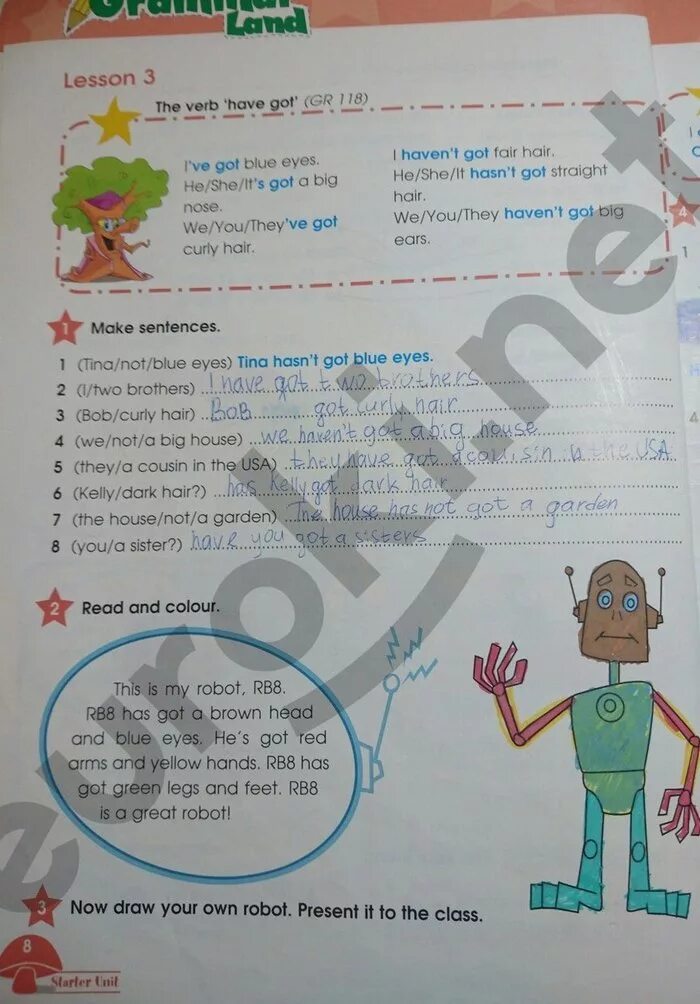 Grammar
Land
Lesson 3
The verb 'have got' (GR 118)
I've got blue eyes.
He/She/It's got a big
nose.
We/You/They've got
curly hair.
I haven't got fair hair.
He/She/It hasn't got straight
hair.
We/You/They haven't got big
ears.
1 Make sentences.
1 (Tina/not/blue eyes) Tina hasn't got blue eyes.
2 (I/two brothers) I have got two brothers
3 (Bob/curly hair) Bob got curly hair
4 (we/not/a big house) we haven't got a big house
5 (they/a cousin in the USA) they have got a cousin in the USA
6 (Kelly/dark hair?) has kelly got dark hair
7 (the house/not/a garden) The house has not got a garden
8 (you/a sister?) have you got a sisters
2 Read and colour.
This is my robot, RB8.
RB8 has got a brown head
and blue eyes. He's got red
arms and yellow hands. RB8 has
got green legs and feet. RB8
is a great robot!
3 Now draw your own robot. Present it to the class.
8
Starter Unit
4
1
4
euroki.net